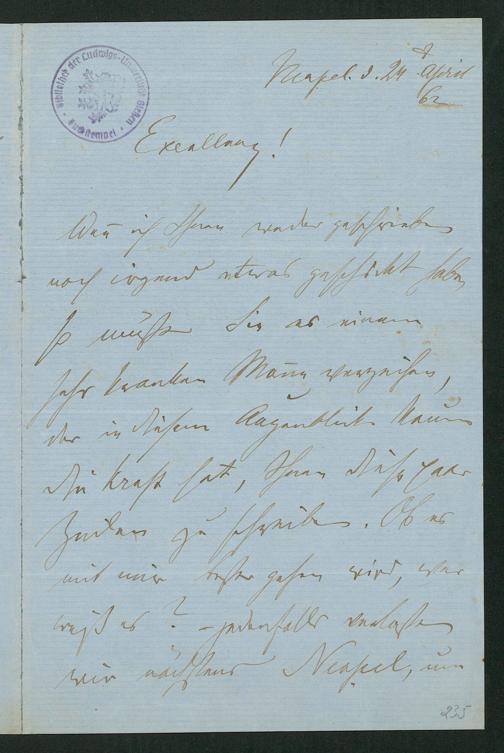 Neapel. d. 24 April
62
Excellenz!
Wenn ich Ihnen weder geschrieben
noch irgend etwas geschickt habe,
so müssen Sie es einem
sehr kranken Mann verzeihen,
der in diesem Augenblick kaum
die Kraft hat, Ihnen diese paar
Zeilen zu schreiben. Ob es
mit mir besser gehen wird, wer
weiß es? – jedenfalls verlassen
wir nächstens Neapel, um
235
Bibliothek der Ludwigs-Universität Giessen